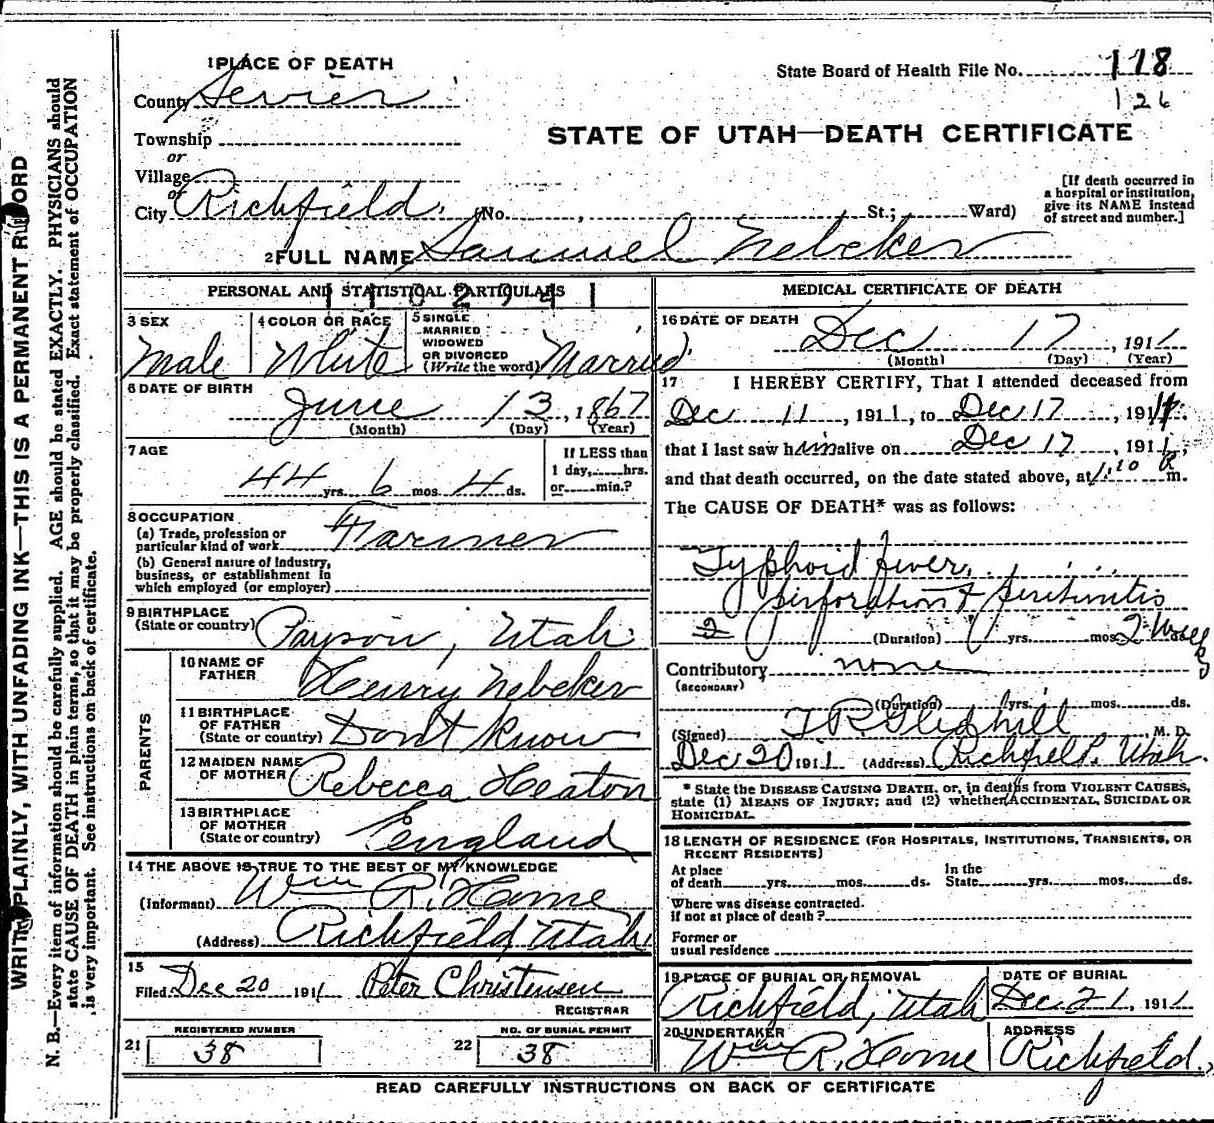 WRITE PLAINLY, WITH UNFADING INK—THIS IS A PERMANENT RECORD
N. B.—Every item of information should be carefully supplied. AGE should be stated EXACTLY. PHYSICIANS should
state CAUSE OF DEATH in plain terms, so that it may be properly classified. Exact statement of OCCUPATION
is very important. See instructions on back of certificate.
1 PLACE OF DEATH
State Board of Health File No. 118
126
County Sevier
STATE OF UTAH—DEATH CERTIFICATE
Township
or
Village
or
City Richfield. (No. , St.; Ward)
[If death occurred in
a hospital or institution,
give its NAME instead
of street and number.]
2 FULL NAME Samuel Nebeker
PERSONAL AND STATISTICAL PARTICULARS
1102941
3 SEX
Male
4 COLOR OR RACE
White
5 SINGLE
MARRIED
WIDOWED
OR DIVORCED
(Write the word) Married
6 DATE OF BIRTH
June 13, 1867
(Month) (Day) (Year)
7 AGE
44 yrs. 6 mos. 4 ds.
If LESS than
1 day, hrs.
or min.?
8 OCCUPATION
(a) Trade, profession or
particular kind of work Farmer
(b) General nature of Industry,
business, or establishment in
which employed (or employer)
9 BIRTHPLACE
(State or country) Payson, Utah
PARENTS
10 NAME OF
FATHER Henry Nebeker
11 BIRTHPLACE
OF FATHER
(State or country) Don't Know
12 MAIDEN NAME
OF MOTHER Rebecca Heaton
13 BIRTHPLACE
OF MOTHER
(State or country) England
14 THE ABOVE IS TRUE TO THE BEST OF MY KNOWLEDGE
(Informant) Wm R. Horne
(Address) Richfield Utah
15
Filed Dec 20 1911 Peter Christensen
REGISTRAR
REGISTERED NUMBER
21 38
NO. OF BURIAL PERMIT
22 38
MEDICAL CERTIFICATE OF DEATH
16 DATE OF DEATH
Dec 17, 1911
(Month) (Day) (Year)
17 I HEREBY CERTIFY, That I attended deceased from
Dec 11, 1911, to Dec 17, 1911.
that I last saw him alive on Dec 17, 1911,
and that death occurred, on the date stated above, at 1:10 P m.
The CAUSE OF DEATH* was as follows:
Typhoid fever,
perforation & peritonitis
2 (Duration) yrs. mos. 2 weeks
Contributory none
(SECONDARY)
(Duration) yrs. mos. ds.
(Signed) T R Gledhill, M. D.
Dec 20 1911 (Address) Richfield. Utah.
* State the DISEASE CAUSING DEATH, or, in deaths from VIOLENT CAUSES,
state (1) MEANS OF INJURY; and (2) whether ACCIDENTAL, SUICIDAL OR
HOMICIDAL.
18 LENGTH OF RESIDENCE (FOR HOSPITALS, INSTITUTIONS, TRANSIENTS, OR
RECENT RESIDENTS)
At place
of death yrs. mos. ds.
In the
State yrs. mos. ds.
Where was disease contracted.
if not at place of death?
Former or
usual residence
19 PLACE OF BURIAL OR REMOVAL
Richfield, Utah
DATE OF BURIAL
Dec 21, 1911
20 UNDERTAKER
Wm R. Horne
ADDRESS
Richfield.
READ CAREFULLY INSTRUCTIONS ON BACK OF CERTIFICATE